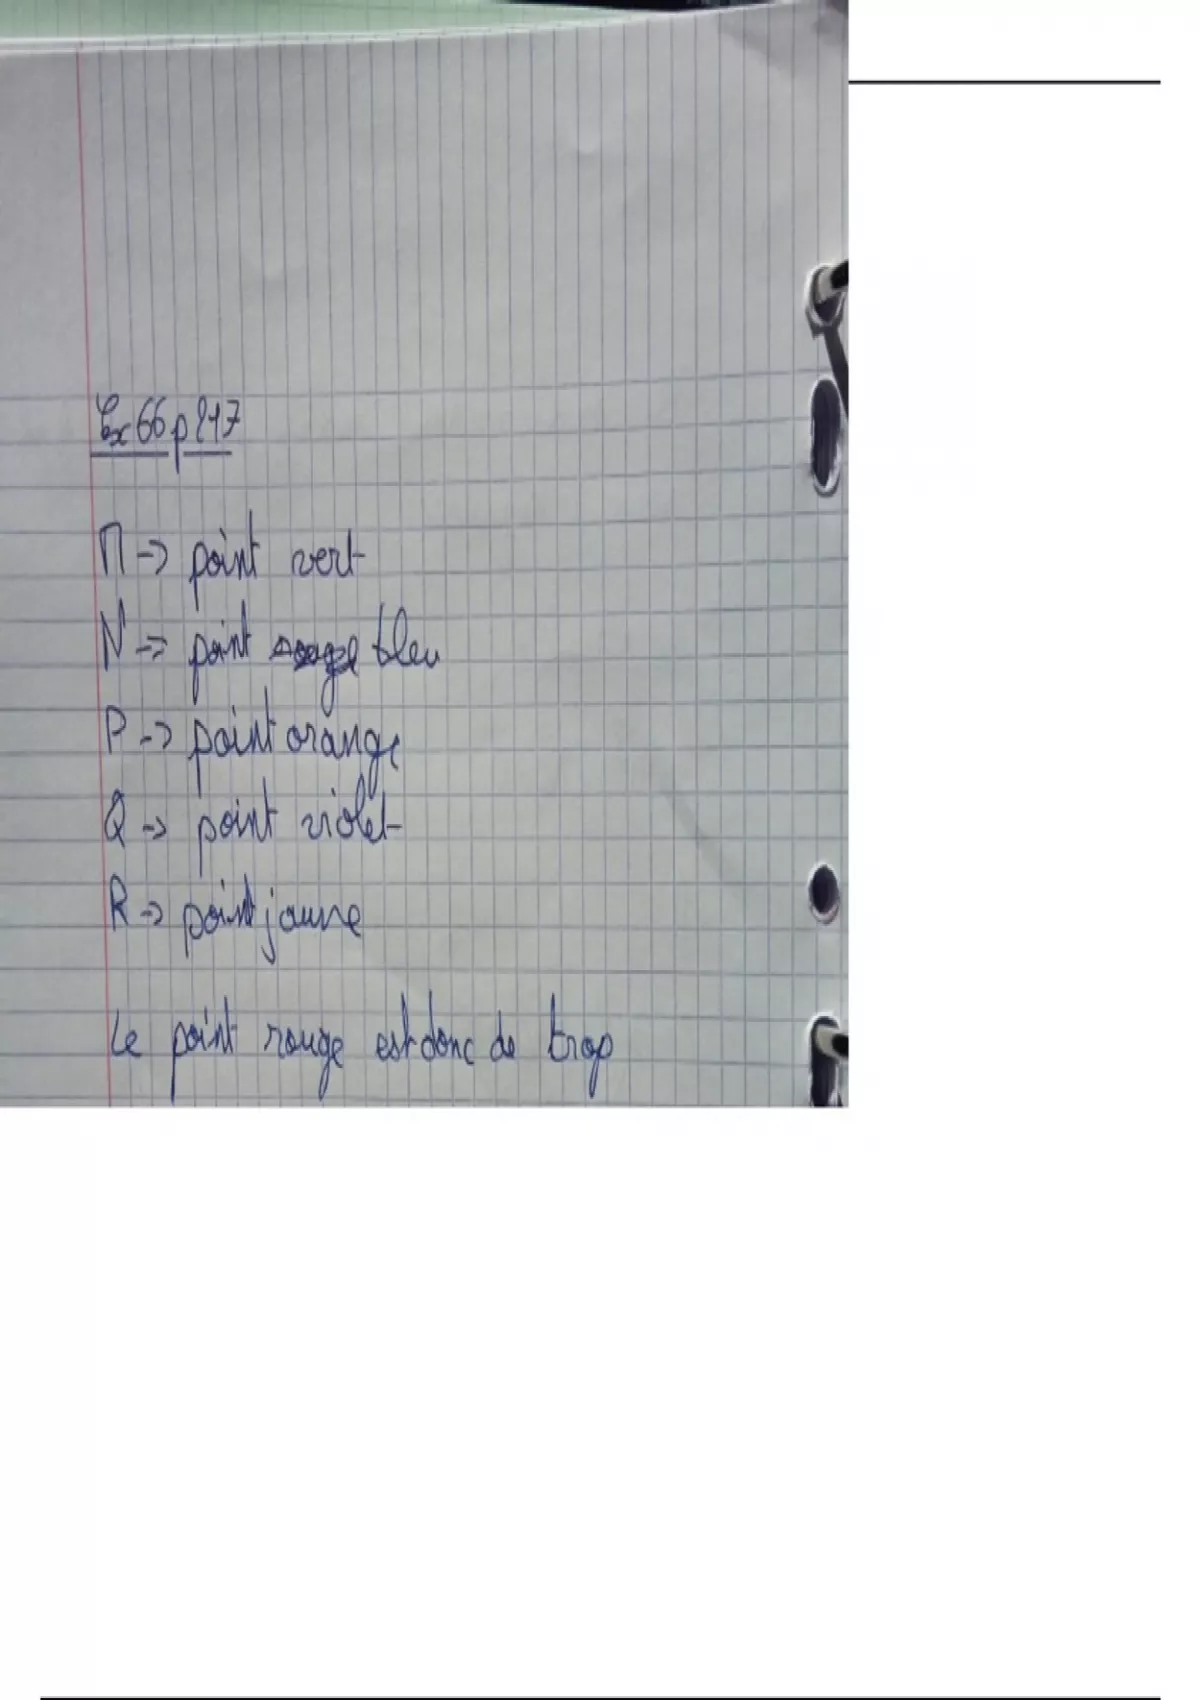 Ex 66 p 217
M -> point vert
N -> point rouge bleu
P -> point orange
Q -> point violet
R -> point jaune
Le point rouge est donc de trop